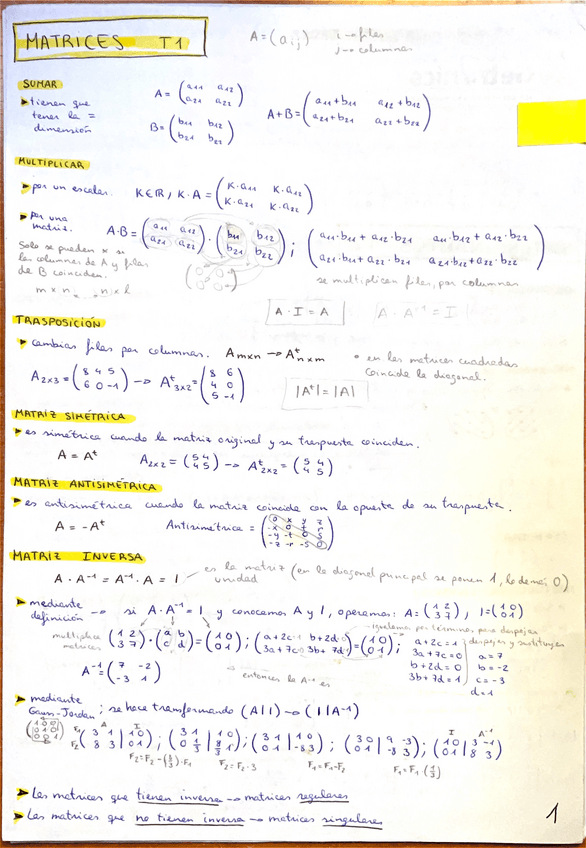 MATRICES T1
A=(aij) i→filas
j→columnas
SUMAR
▸tienen que tener la = dimensión
A = (a11 a12 / a21 a22)
B = (b11 b12 / b21 b22)
A+B = (a11+b11 a12+b12 / a21+b21 a22+b22)
MULTIPLICAR
▸por un escalar. K∈ℝ, K·A = (K·a11 K·a12 / K·a21 K·a22)
▸por una matriz. A·B = (a11 a12 / a21 a22) · (b11 b12 / b21 b22) ; (a11·b11 + a12·b21 a11·b12 + a12·b22 / a21·b11 + a22·b21 a21·b12 + a22·b22)
Solo se pueden × si
las columnas de A y filas
de B coinciden.
m×n n×l
se multiplican filas, por columnas
A·I = A
A·A⁻¹ = I
TRASPOSICIÓN
▸cambias filas por columnas. Amxn → Aᵗnxm
• en las matrices cuadradas
coincide la diagonal.
A2x3 = (8 4 5 / 6 0 -1) → Aᵗ3x2 = (8 6 / 4 0 / 5 -1)
|Aᵗ| = |A|
MATRIZ SIMÉTRICA
▸es simétrica cuando la matriz original y su traspuesta coinciden.
A = Aᵗ A2x2 = (5 4 / 4 5) → Aᵗ2x2 = (5 4 / 4 5)
MATRIZ ANTISIMÉTRICA
▸es antisimétrica cuando la matriz coincide con la opuesta de su traspuesta.
A = -Aᵗ Antisimétrica =
MATRIZ INVERSA
A·A⁻¹ = A⁻¹·A = I
es la matriz (en la diagonal principal se ponen 1, lo demás 0)
unidad
▸mediante definición → si A·A⁻¹ = I y conocemos A y I, operamos: A = (1 2 / 3 7), I = (1 0 / 0 1)
igualamos por términos para despejar
multiplica matrices (1 2 / 3 7) · (a b / c d) = (1 0 / 0 1) ; (a+2c b+2d / 3a+7c 3b+7d) = (1 0 / 0 1) ;
a+2c = 1
3a+7c = 0
b+2d = 0
3b+7d = 1
despejas y sustituyes
a = 7
b = -2
c = -3
d = 1
A⁻¹ = (7 -2 / -3 1)
→ entonces la A⁻¹ es
▸mediante Gauss-Jordan ; se hace transformando (A|I) → (I|A⁻¹)
(1 0 0 / 0 1 0 / 0 0 1)
A I
F1 F2 (3 1 | 1 0 / 8 3 | 0 1) ; (3 1 | 1 0 / 0 1/3 | 8/3 1) ; (3 1 | 1 0 / 0 1 | -8 3) ; (3 0 | 9 -3 / 0 1 | -8 3) ; (1 0 | 3 -1 / 0 1 | 8 3)
I A⁻¹
F2=F2-(8/3)·F1 F2=F2·3 F1=F1-F2 F1=F1(1/3)
▸Las matrices que tienen inversa → matrices regulares
▸Las matrices que no tienen inversa → matrices singulares
1